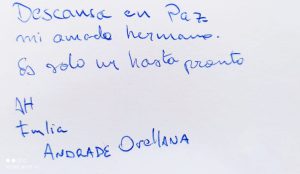 Descansa en Paz
mi amado hermano.
Es solo un hasta pronto
JH
Emilia
ANDRADE OrellANA